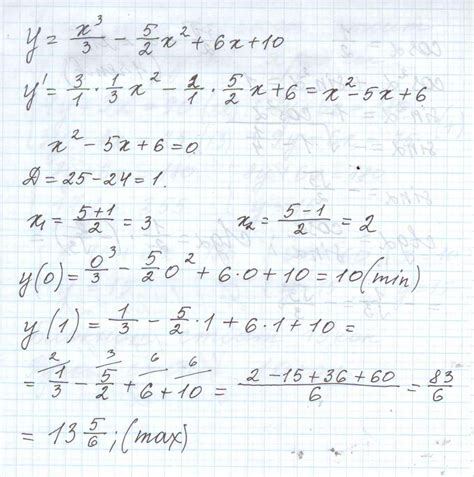 y = x³/3 − 5/2 x² + 6x + 10
y' = 3/1 · 1/3 x² − 2/1 · 5/2 x + 6 = x² − 5x + 6
x² − 5x + 6 = 0
D = 25 − 24 = 1.
x₁ = (5+1)/2 = 3     x₂ = (5−1)/2 = 2
y(0) = 0³/3 − 5/2 0² + 6·0 + 10 = 10 (min)
y(1) = 1/3 − 5/2 · 1 + 6·1 + 10 =
= ²1/3 − ³5/2 + ⁶6 + ⁶10 = (2 − 15 + 36 + 60)/6 = 83/6
= 13 5/6; (max)